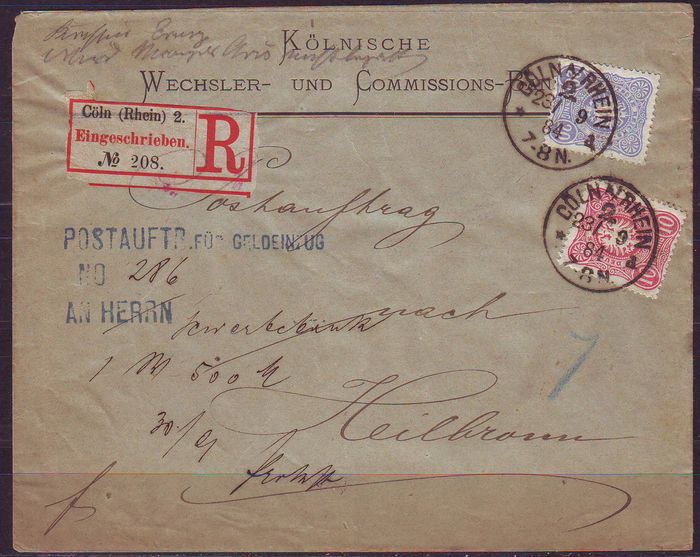 KÖLNISCHE
WECHSLER- UND COMMISSIONS-B
Cöln (Rhein) 2.
Eingeschrieben.
No 208.
R
CÖLN A/RHEIN
2
23/ 9
84
* d
7-8 N.
CÖLN A/RHEIN
2
23/ 9
84
* d
7-8 N.
10
10
Postauftrag
POSTAUFTR. FÜR GELDEINZUG
NO 286
AN HERRN
nach
1 W 500 M
30/9
Heilbronn
7